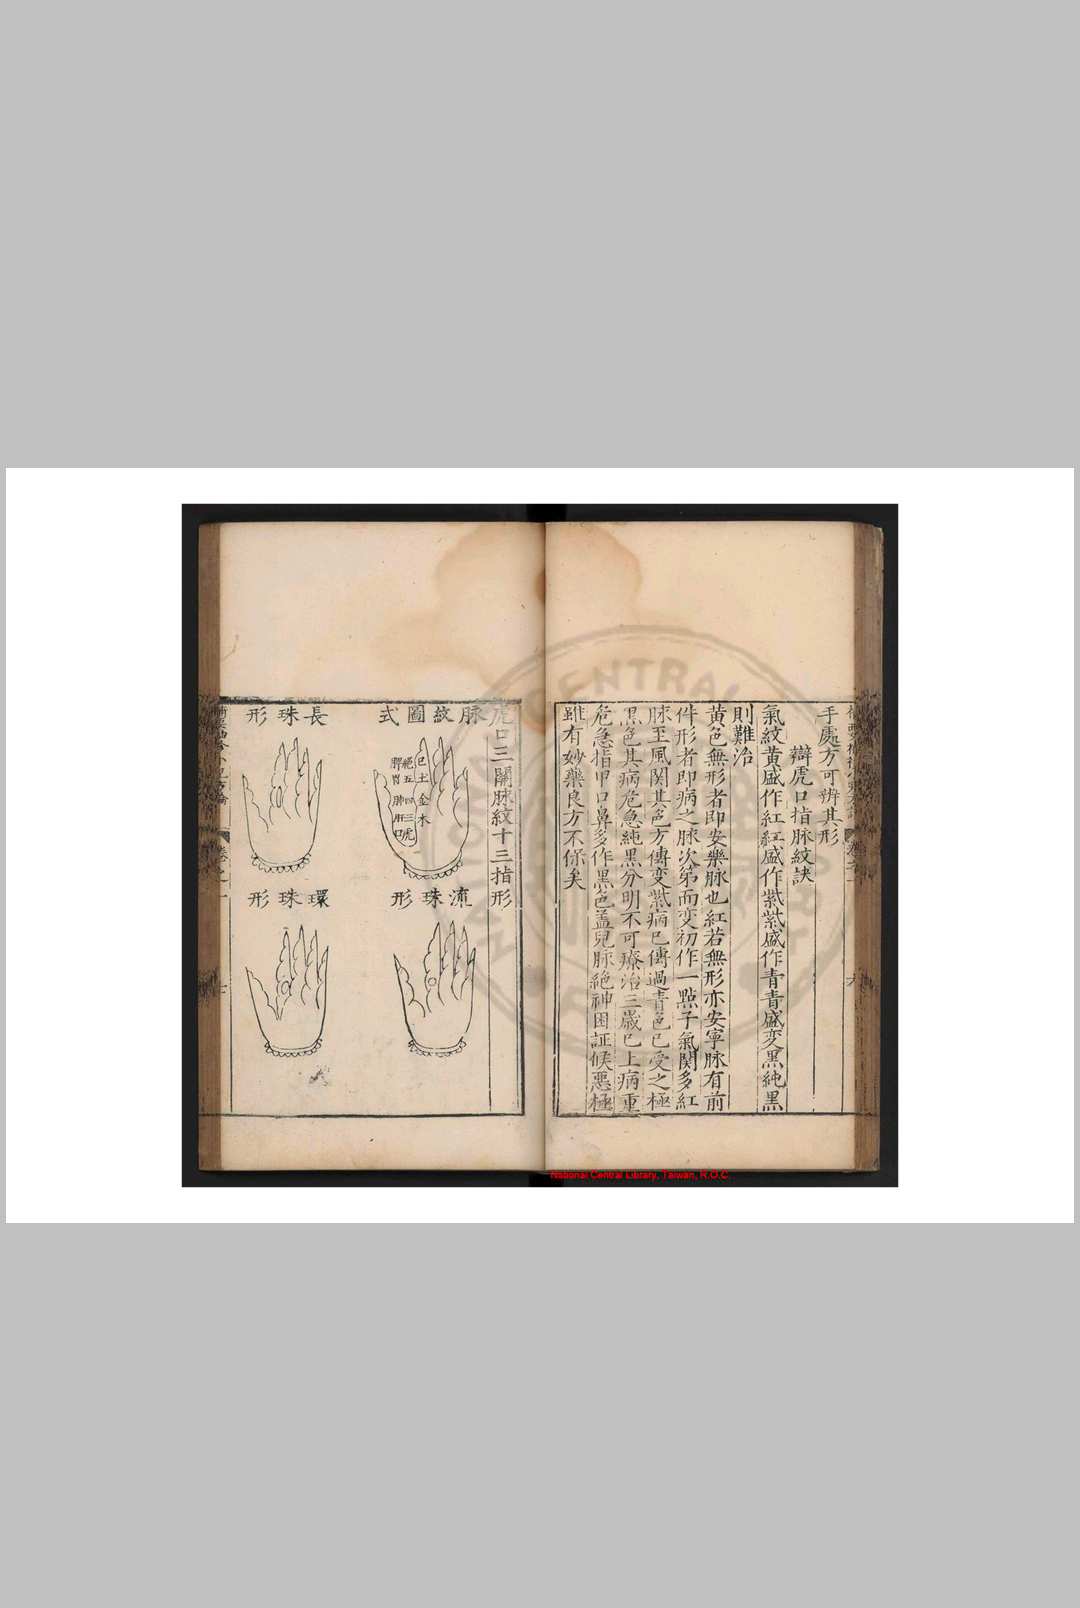 手處方可辨其形
辯虎口指脉紋訣
氣紋黃盛作紅紅盛作紫紫盛作青青盛變黑純黑
則難治
黃色無形者即安藥脉也紅若無形亦安寧脉有前
件形者即病之脉次第而变初作一點子氣関多紅
脉至風関其色方傳变紫病已傳過青色已受之極
黑色其病危急純黑分明不可療治三歲已上病重
危急指甲口鼻多作黑色盖兒脉絶神困証候惡極
雖有妙藥良方不保矣
虎口三關脉紋十三指形
脉紋圖式
流珠形
長珠形
環珠形
National Central Library, Taiwan, R.O.C.